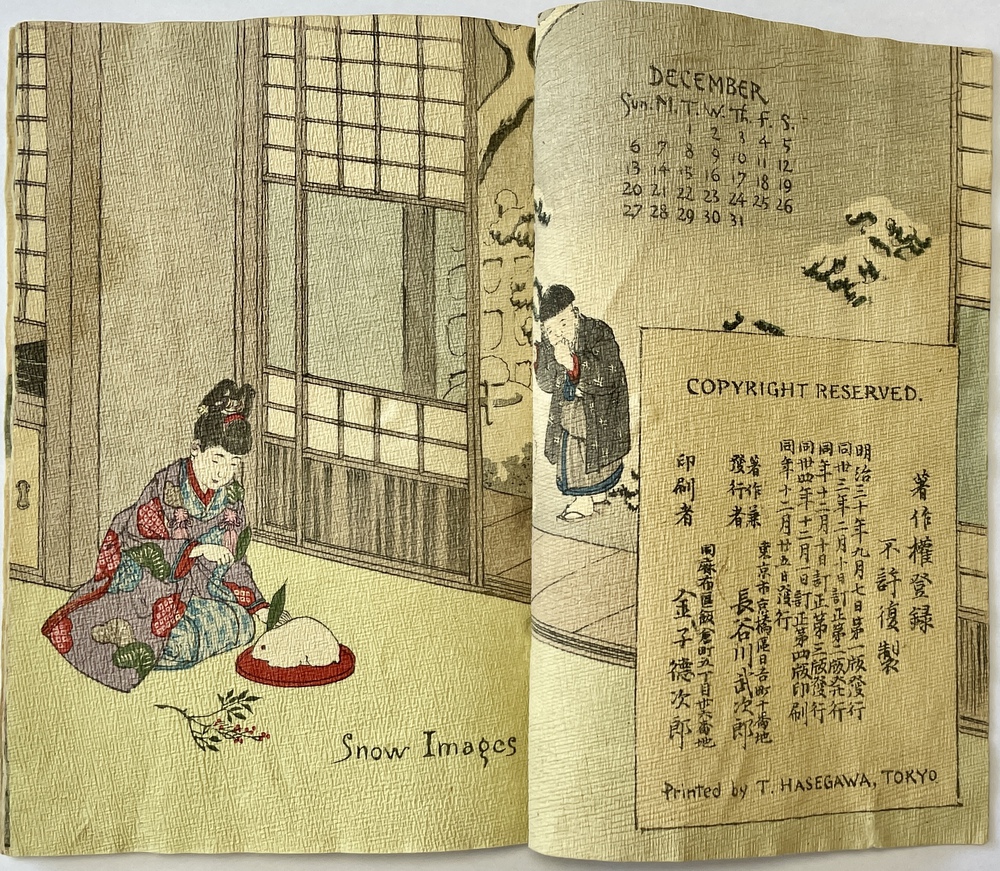 Snow Images
DECEMBER
Sun. M. T. W. Th. F. S.
1 2 3 4 5
6 7 8 9 10 11 12
13 14 15 16 17 18 19
20 21 22 23 24 25 26
27 28 29 30 31
COPYRIGHT RESERVED.
著作權登録
不許復製
明治三十年九月七日第一版發行
同卅三年二月十日訂正第二版発行
同年十二月十日訂正第三版發行
同卅四年十二月一日訂正第四版印刷
同年十二月廿五日發行
著作兼
發行者
東京市京橋區日吉町十番地
長谷川武次郎
印刷者
同麻布區飯倉町五丁目廿六番地
金子德次郎
Printed by T. HASEGAWA, TOKYO